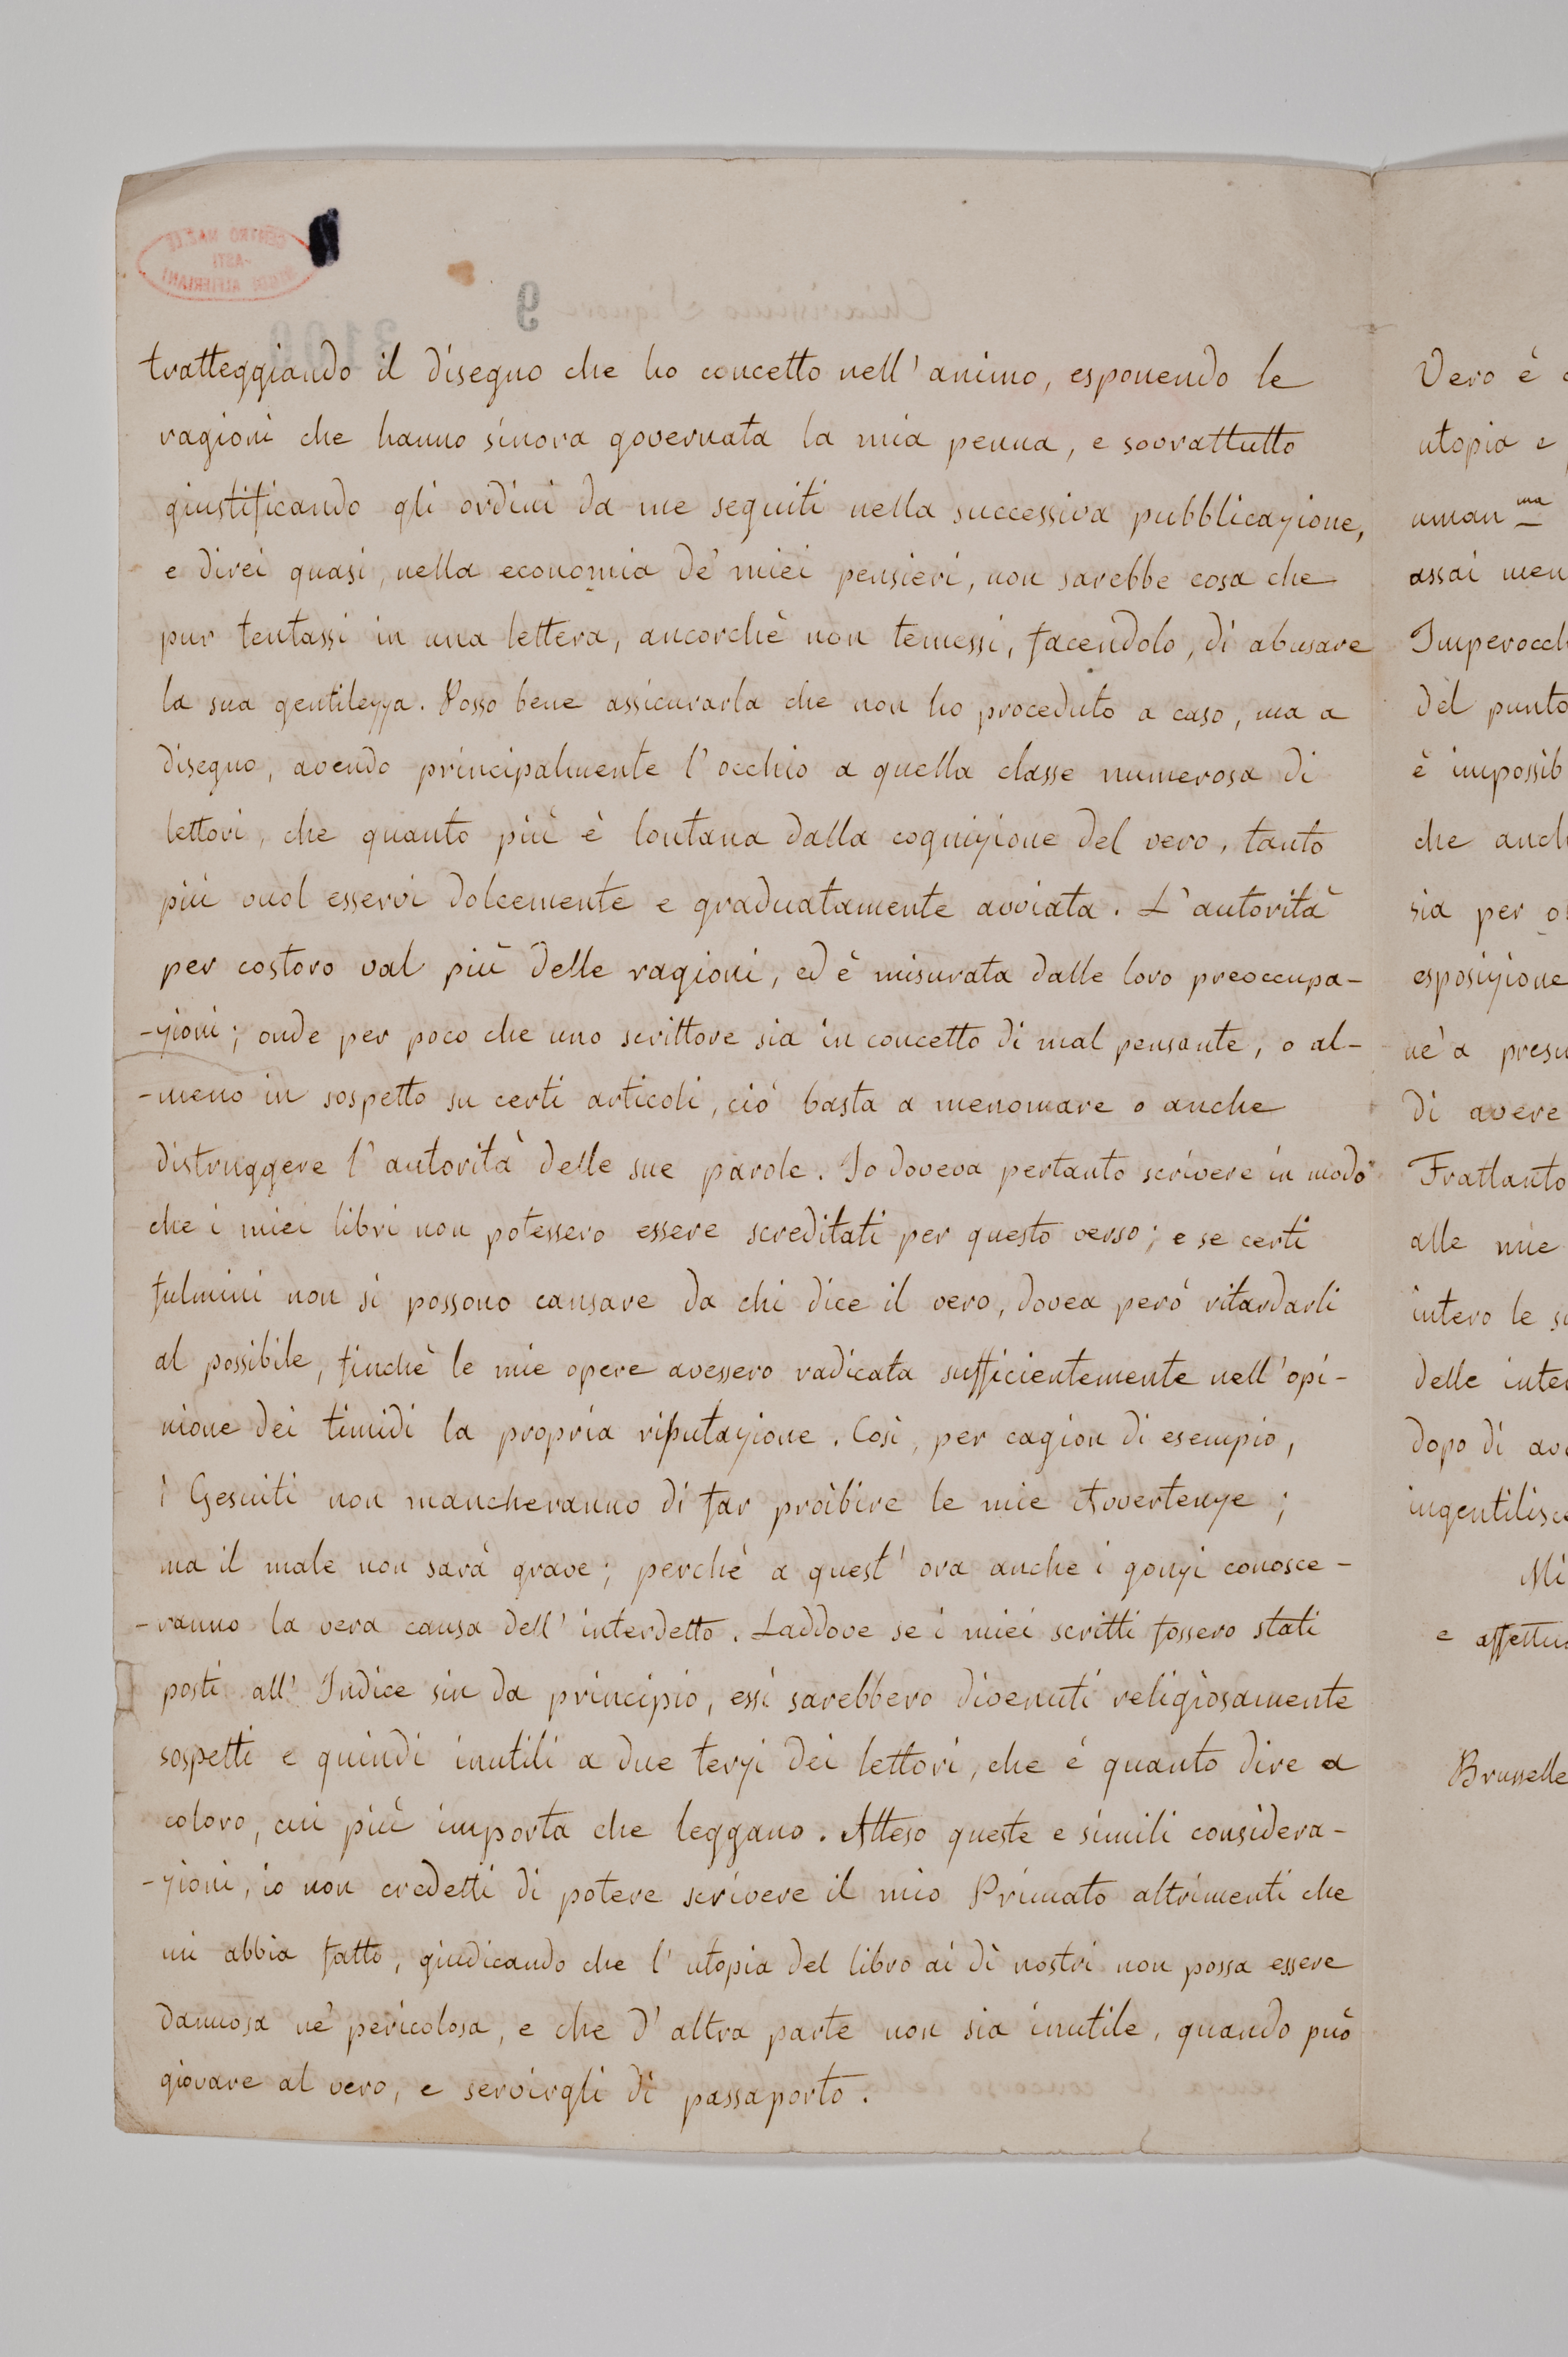 tratteggiando il disegno che ho concetto nell' animo, esponendo le
ragioni che hanno sinora governata la mia penna, e sovrattutto
giustificando gli ordini da me seguiti nella successiva pubblicazione,
e direi quasi, nella economia de' miei pensieri, non sarebbe cosa che
pur tentassi in una lettera, ancorchè non temessi, facendolo, di abusare
la sua gentilezza. Posso bene assicurarla che non ho proceduto a caso, ma a
disegno, avendo principalmente l' occhio a quella classe numerosa di
lettori, che quanto più è lontana dalla cognizione del vero, tanto
più vuol esservi dolcemente e graduatamente avviata. L' autorità
per costoro val più delle ragioni, ed è misurata dalle loro preoccupa-
-zioni; onde per poco che uno scrittore sia in concetto di mal pensante, o al-
-meno in sospetto su certi articoli, ciò basta a menomare o anche
distruggere l' autorità delle sue parole. Io doveva pertanto scrivere in modo
che i miei libri non potessero essere screditati per questo verso; e se certi
fulmini non si possono cansare da chi dice il vero, dovea però ritardarli
al possibile, finchè le mie opere avessero radicata sufficientemente nell' opi-
nione dei timidi la propria riputazione. Così, per cagion di esempio,
i Gesuiti non mancheranno di far proibire le mie Avvertenze;
ma il male non sarà grave; perchè a quest' ora anche i gonzi conosce-
-ranno la vera causa dell' interdetto. Laddove se i miei scritti fossero stati
posti all' Indice sin da principio, essi sarebbero divenuti religiosamente
sospetti e quindi inutili a due terzi dei lettori, che è quanto dire a
coloro, cui più importa che leggano. Atteso queste e simili considera-
-zioni, io non credetti di potere scrivere il mio Primato altrimenti che
mi abbia fatto, giudicando che l' utopia del libro ai dì nostri non possa essere
dannosa nè pericolosa, e che d' altra parte non sia inutile, quando può
giovare al vero, e servirgli di passaporto.
Vero è
utopia e
uman ma
assai men
Imperocch
del punto
è impossib
che anch
sia per
esposizione
nè a presu
di avere
Frattanto
alle mie
intero le
delle inter
dopo di av
ingentilisce
Mi
e affettu
Brusselle